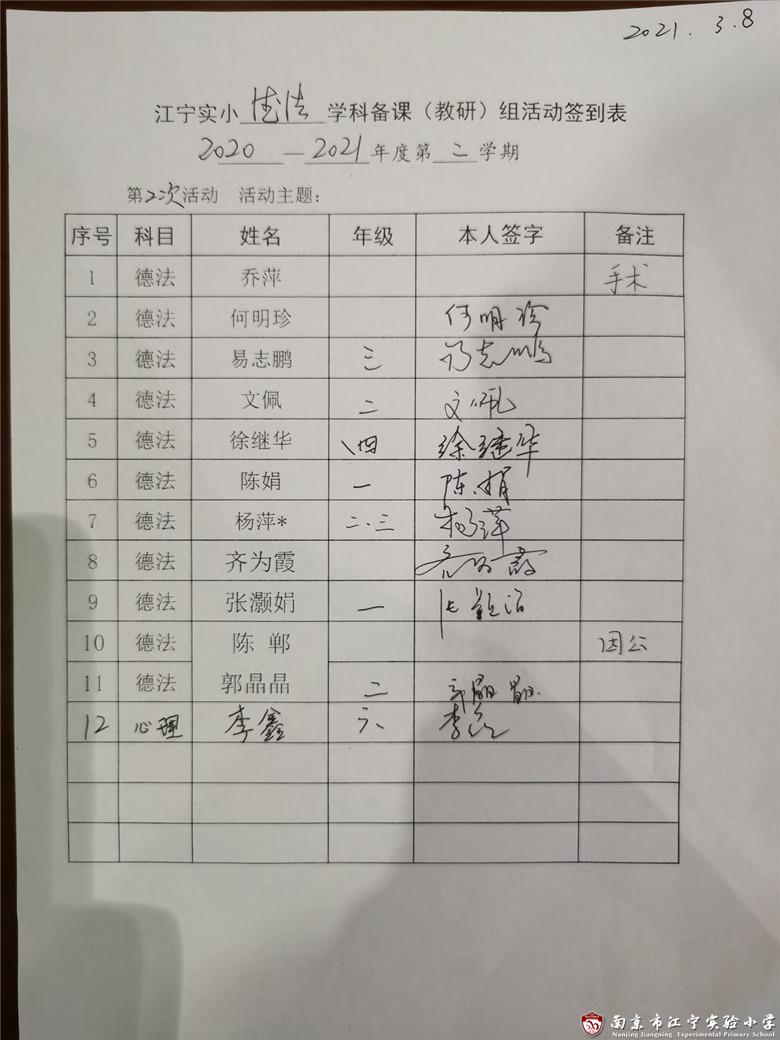 2021.3.8
江宁实小 德法 学科备课（教研）组活动签到表
2020 — 2021 年度第 二 学期
第2次活动 活动主题：
序号 科目 姓名 年级 本人签字 备注
1 德法 乔萍 手术
2 德法 何明珍 何明珍
3 德法 易志鹏 三 易志鹏
4 德法 文佩 二 文佩
5 德法 徐继华 四 徐继华
6 德法 陈娟 一 陈娟
7 德法 杨萍* 二、三 杨萍
8 德法 齐为霞 齐为霞
9 德法 张灏娟 一
10 德法 陈郸 因公
11 德法 郭晶晶 二 郭晶晶
12 心理 李鑫 六 李鑫
南京市江宁实验小学
Nanjing Jiangning Experimental Primary School